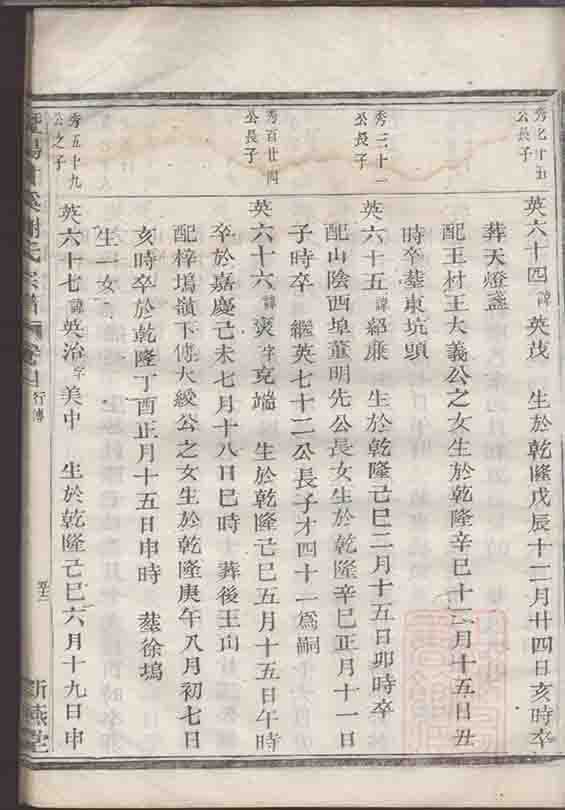 公長子
英六十四諱英茂 生於乾隆戊辰十二月廿四日亥時卒
葬天燈盞
配王村王大義公之女生於乾隆辛巳十二月十五日丑
時卒墓東坑頭
秀三十一
公長子
英六十五諱紹康 生於乾隆己巳二月十五日卯時卒
配山陰西埠董明先公長女生於乾隆辛巳正月十一日
子時卒 繼英七十二公長子才四十一為嗣
秀百廿四
公長子
英六十六諱爽字克端 生於乾隆己巳五月十五日午時
卒於嘉慶己未七月十八日巳時 葬後王山
配梓塢嶺下傅大綬公之女生於乾隆庚午八月初七日
亥時卒於乾隆丁酉正月十五日申時 墓徐塢
生一女
秀五十九
公之子
英六十七諱英治字美中 生於乾隆己巳六月十九日申
氏宗譜 行傳